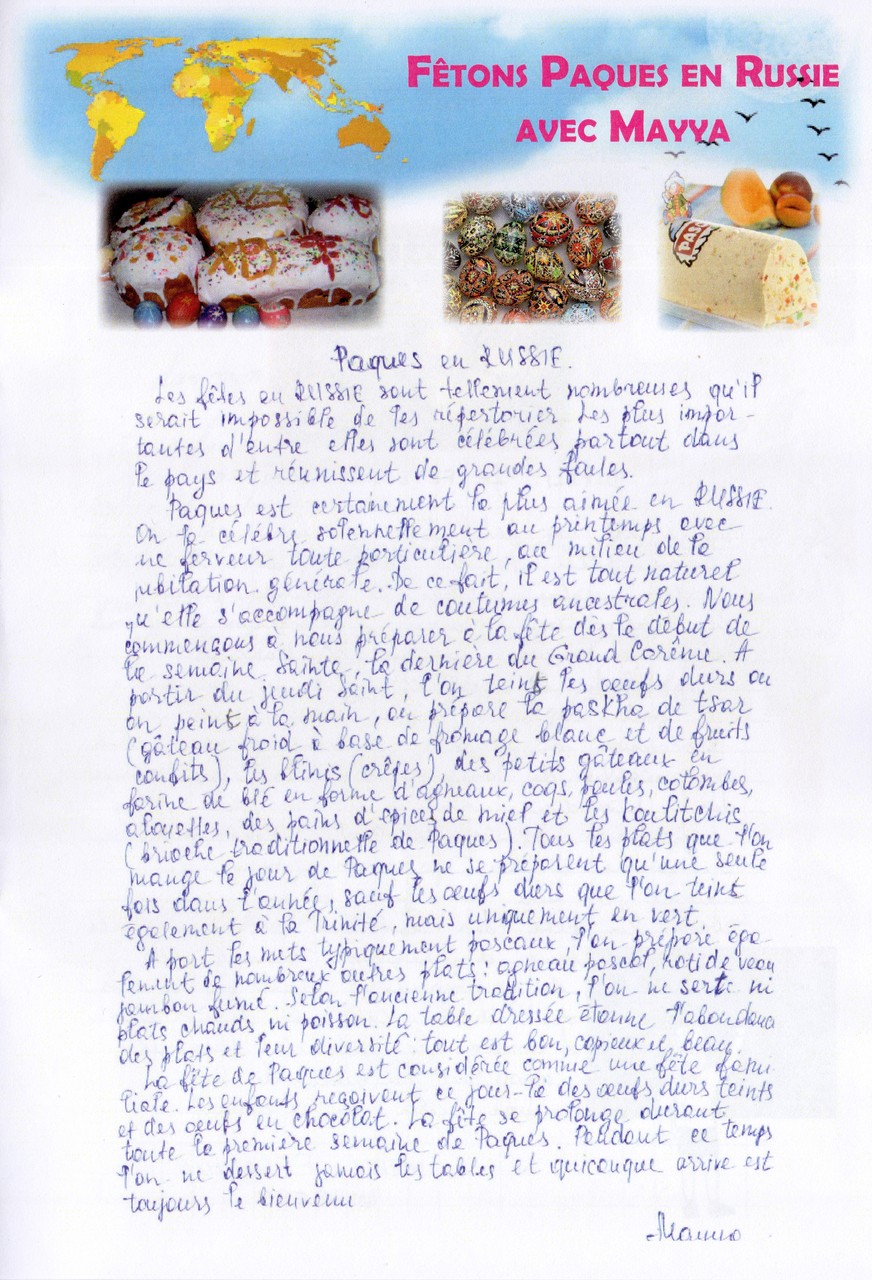 FÊTONS PAQUES EN RUSSIE
AVEC MAYYA
ХВ
PASK
Paques en RUSSIE.
Les fêtes en RUSSIE sont tellement nombreuses qu'il
serait impossible de les répertorier. Les plus impor-
tantes d'entre elles sont célébrées partout dans
le pays et réunissent de grandes foules.
Paques est certainement la plus aimée en RUSSIE.
On la célèbre solennellement au printemps avec
ne ferveur toute particulière, au milieu de la
jubilation générale. De ce fait, il est tout naturel
qu'elle s'accompagne de coutumes ancestrales. Nous
commençons à nous préparer à la fête dès le début de
la semaine Sainte, la dernière du Grand Carême. A
partir du jeudi Saint, l'on teint les oeufs durs ou
on peint à la main, on prépare la paskha de tsar
(gâteau froid à base de fromage blanc et de fruits
confits), les blinis (crêpes), des petits gâteaux en
farine de blé en forme d'agneaux, coqs, poules, colombes,
aloyettes, des pains d'epices de miel et les koulitchis
(brioche traditionnelle de Paques). Tous les plats que l'on
mange le jour de Paques ne se préparent qu'une seule
fois dans l'année, sauf les oeufs durs que l'on teint
également à la Trinité, mais uniquement en vert.
A part les mets typiquement pascaux, l'on prépare éga-
lement de nombreux autres plats: agneau pascal, roti de veau
jambon fumé. Selon l'ancienne tradition, l'on ne serts ni
plats chauds ni poisson. La table dressée étonne l'abondance
des plats et leur diversité: tout est bon, copieux et beau.
La fête de Paques est considérée comme une fête fami
liale. Les enfants reçoivent ce jour-là des oeufs durs teints
et des oeufs en chocolat. La fête se prolonge durant
toute la première semaine de Paques. Pendant ce temps
l'on ne dessert jamais les tables et quiconque arrive est
toujours le bienvenu